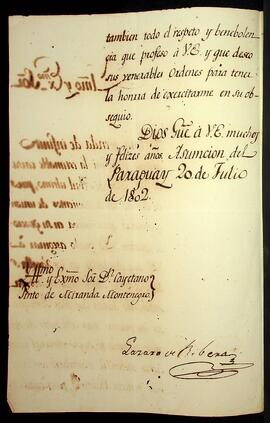 tambien todo el respeto y benebolen-
cia que profeso á V.E. y que deseo
sus venerables Ordenes para tener
la honrra de exercitarme en su ob-
sequio.
Dios Gue á V.E. muchos
y felizes años. Asuncion del
Paraguay 20 de Julio
de 1802.
Yllmo y Exmo Sor Dn Cayetano
Pinto de Miranda Montenegro
Lazaro de Ribera